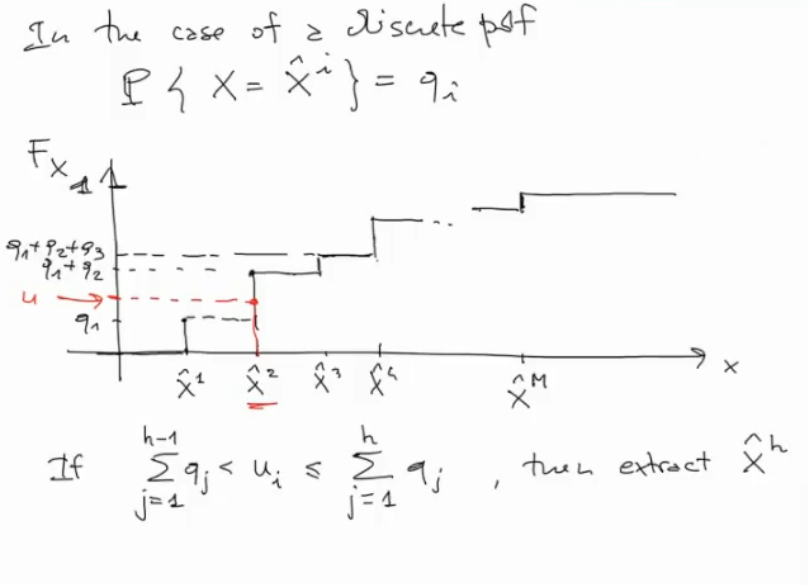 In the case of a discrete pdf
P { X = x̂ⁱ } = qᵢ
F_X
1
q₁+q₂+q₃
q₁+q₂
u
q₁
x̂¹ x̂² x̂³ x̂⁴ x̂ᴹ x
If ∑_{j=1}^{h-1} qⱼ < uᵢ ≤ ∑_{j=1}^{h} qⱼ , then extract x̂ʰ